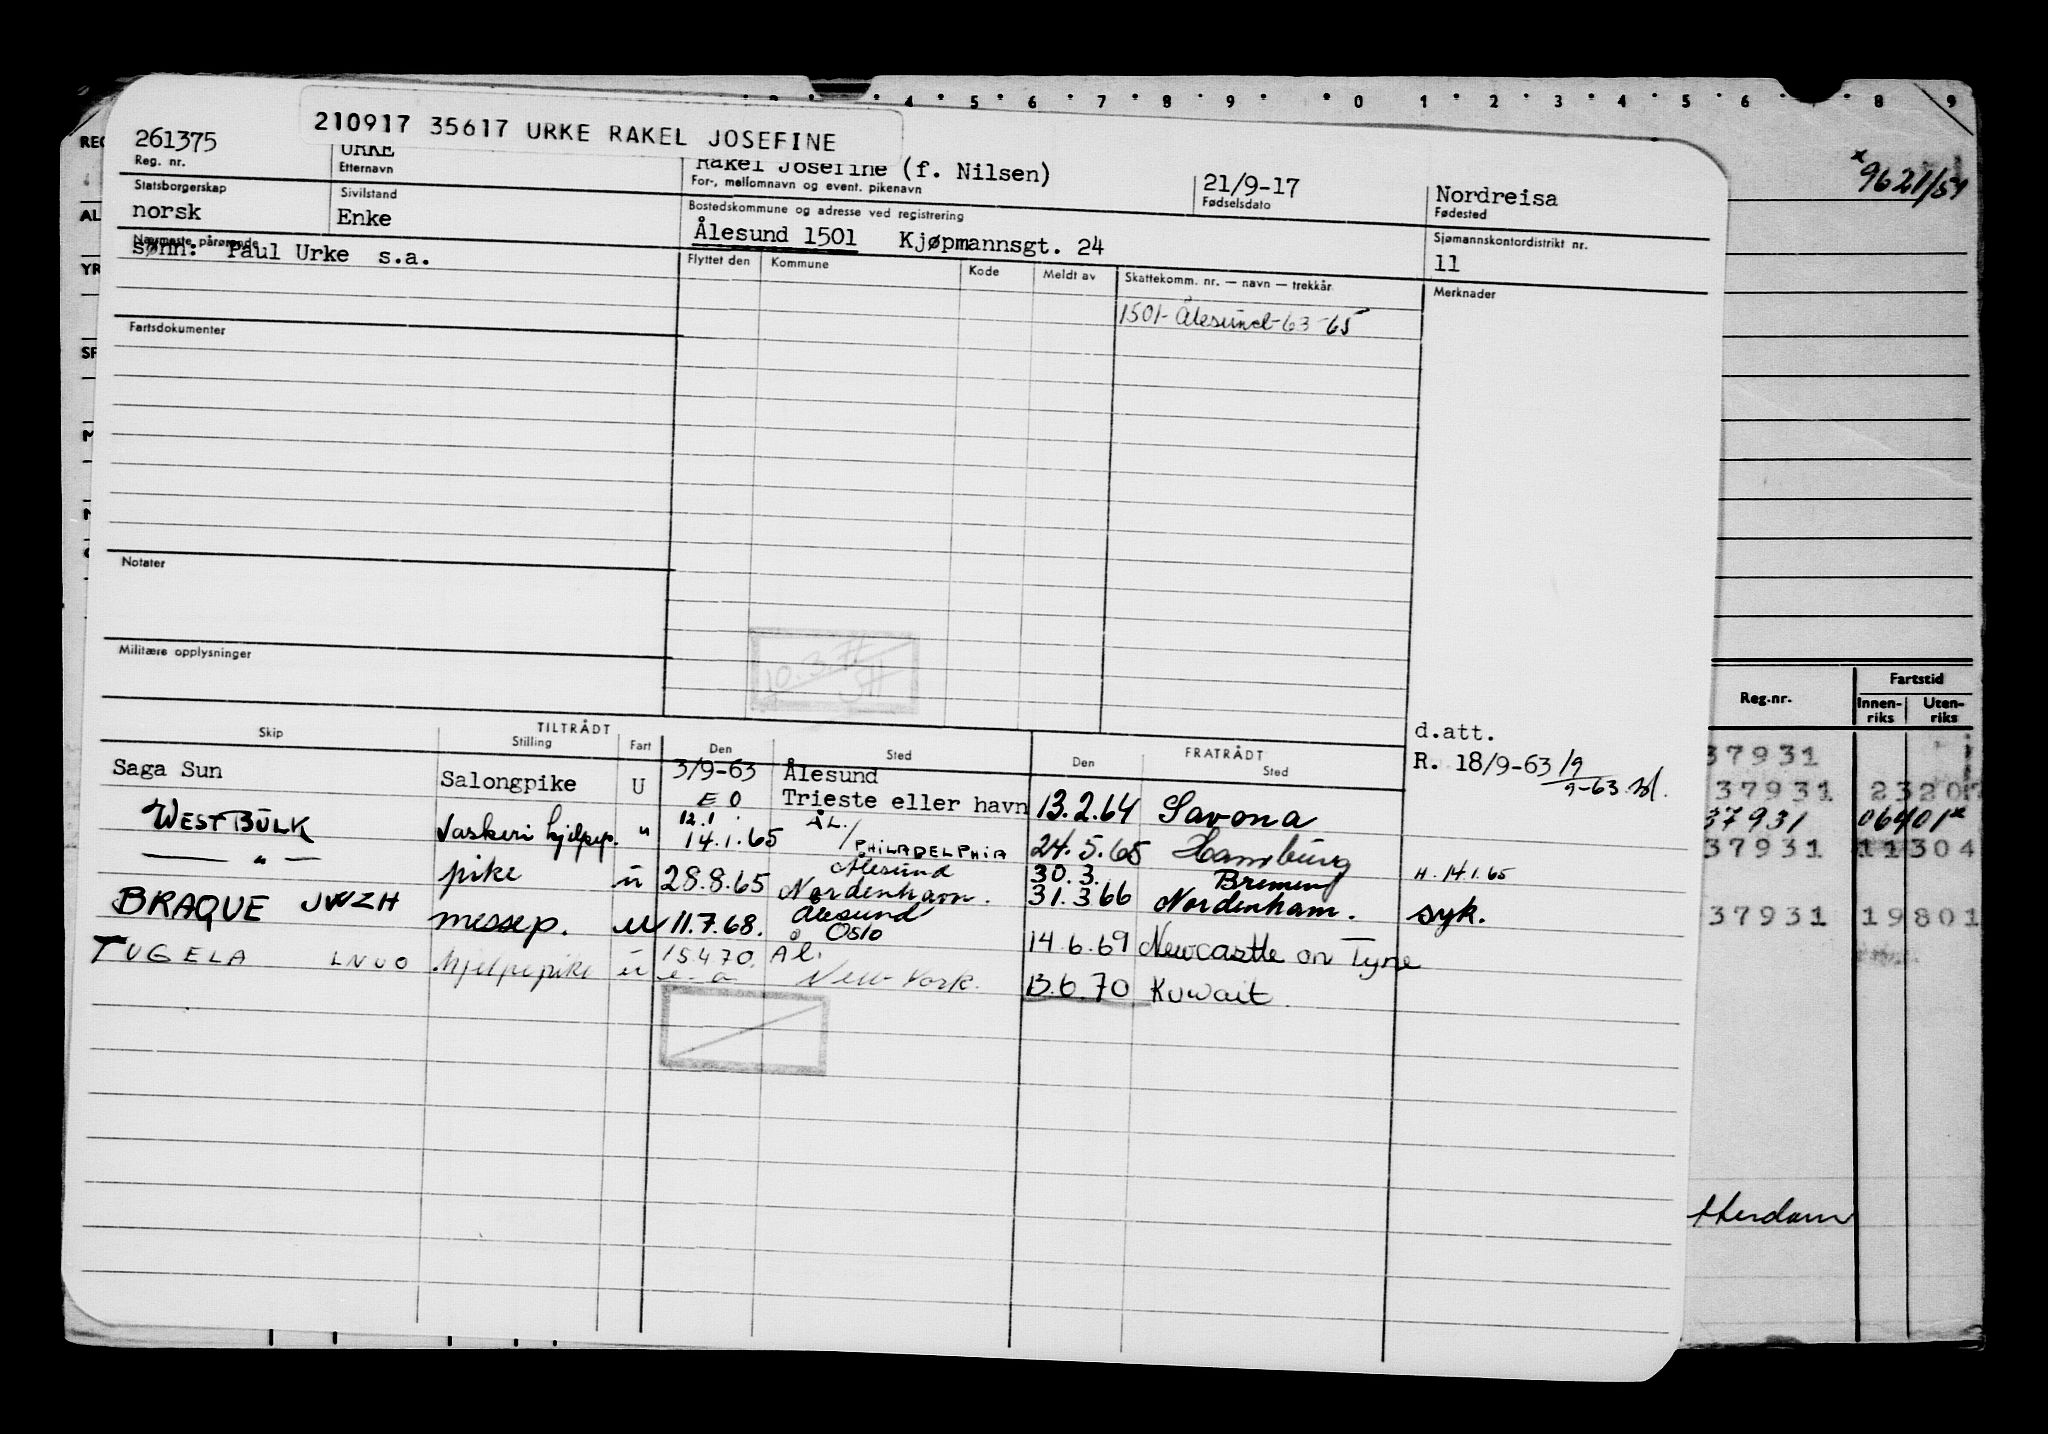 4 5 6 7 8 9 0 1 2 3 4 5 6 7 8 9
210917 35617 URKE RAKEL JOSEFINE
9621/51
261375 URKE Rakel Josefine (f. Nilsen) 21/9-17 Nordreisa
Reg. nr. Etternavn For-, mellomnavn og event. pikenavn Fødselsdato Fødested
Statsborgerskap Sivilstand Bostedskommune og adresse ved registrering Sjømannskontordistrikt nr.
norsk Enke Ålesund 1501 Kjøpmannsgt. 24 11
Nærmeste pårørende Flyttet den Kommune Kode Meldt av Skattekomm. nr. — navn — trekkår Merknader
sønn: Paul Urke s.a.
1501- Ålesund-63-65
Fartsdokumenter
Notater
Militære opplysninger
Reg.nr. Fartstid
Innen-riks Uten-riks
TILTRÅDT FRATRÅDT d.att.
Skip Stilling Fart Den Sted Den Sted
Saga Sun Salongpike U 3/9-63 Ålesund R. 18/9-63 19/9-63 37931
E O Trieste eller havn 13.2.64 Savona 37931
WESTBULK Vaskeri hjelpep. u 12.1 ÅL./ 37931 06401
14.1.65 PHILADELPHIA 24.5.65 Hamburg 37931 11304
— " — pike u 28.8.65 Ålesund 30.3. Bremen H. 14.1.65
Nordenham. 31.3.66 Nordenham. syk.
BRAQUE JWZH messep. u 11.7.68. Ålesund 37931 19801
Oslo 14.6.69 Newcastle on Tyne
TUGELA LNUO hjelpepike u 15.4.70. Ål.
e. o New York. 13.6.70 Kuwait.